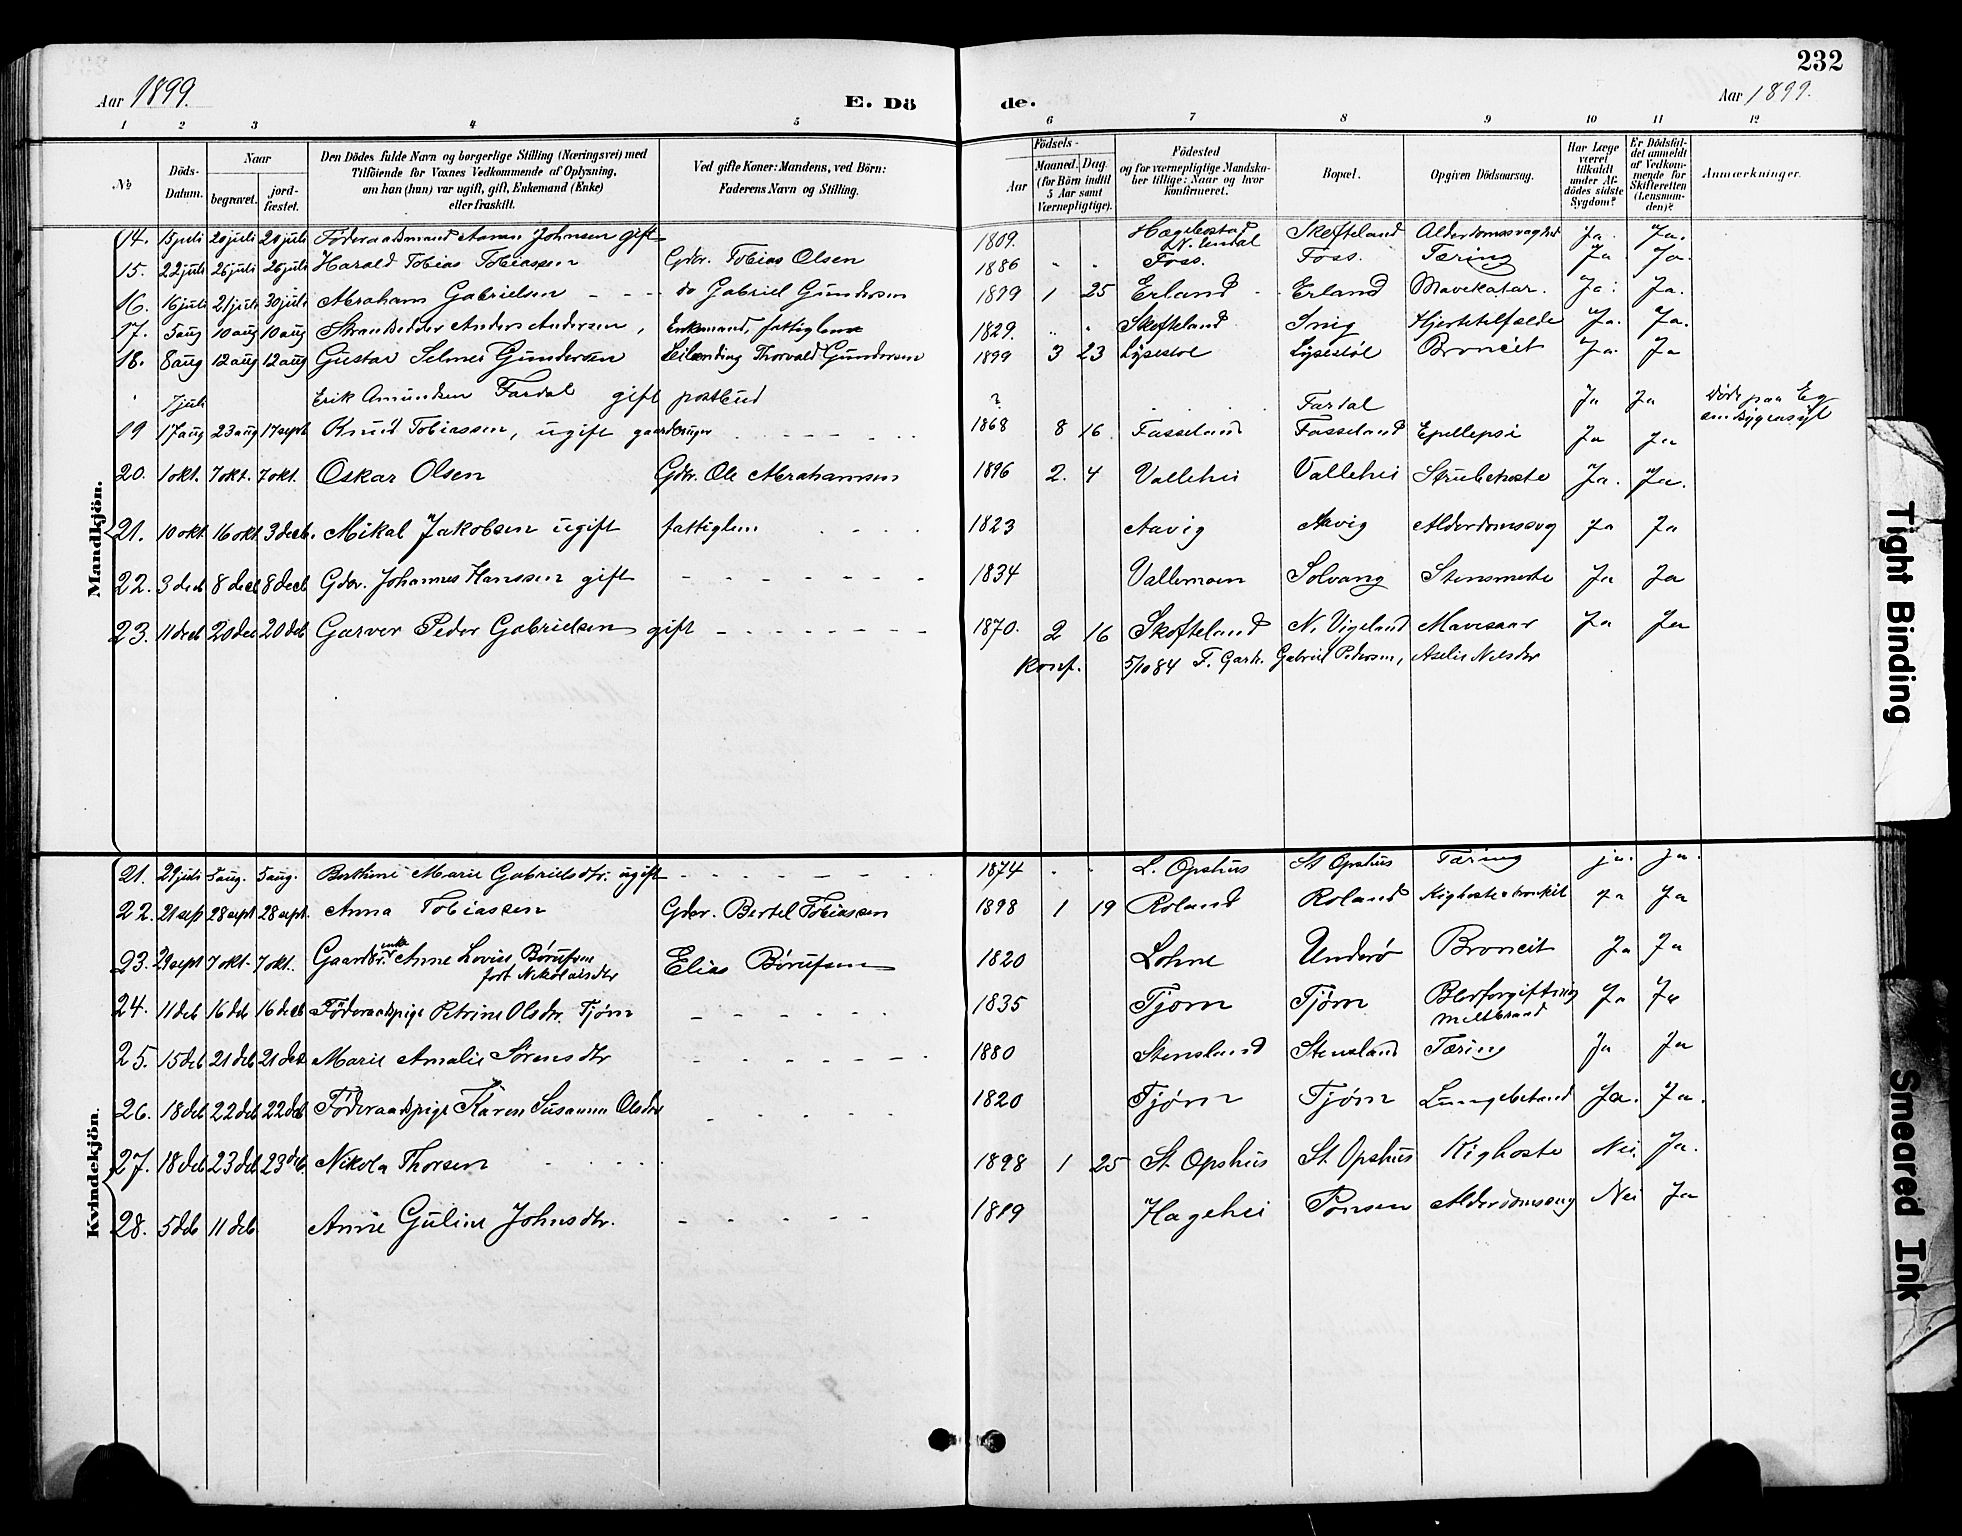 232
Aar 1899.
E. Dö
de.
Aar 1899.
1 2 3 4 5 6 7 8 9 10 11 12
No
Döds-Datum.
Naar
begravet.
jord-fæstet.
Den Dödes fulde Navn og borgerlige Stilling (Næringsvei) med
Tilföiende for Voxnes Vedkommende af Oplysning,
om han (hun) var ugift, gift, Enkemand (Enke)
eller fraskilt.
Ved gifte Koner: Mandens, ved Börn:
Faderens Navn og Stilling.
Födsels-
Aar
Maaned. Dag.
(for Börn indtil
5 Aar samt
Værnepligtige).
Födested
og for værnepligtige Mandska-
ber tillige: Naar og hvor
konfirmeret.
Bopæl.
Opgiven Dödsaarsag.
Har Læge
været
tilkaldt
under Af-
dödes sidste
Sygdom?
Er Dödsfal-
det anmeldt
af Vedkom-
mende for
Skifteretten
(Lensman-
den)?
Anmærkninger.
Mandkjön.
14. 15 juli 20 juli 20 juli Föderaadsmand Aanen Johnsen gift 1809. Hægebostad N. Undal Skofteland Alderdomssvaghed Ja. Ja.
15. 22 juli 26 juli 26 juli Harald Tobias Tobiassen Gdbr. Tobias Olsen 1886 " " Foss. Foss. Tæring Ja Ja.
16. 16 juli 21 juli 30 juli Abraham Gabrielsen - - - do Gabriel Gundersen 1899 1 25 Erland - Erland Mavekatar. Ja. Ja.
17. 5 aug 10 aug 10 aug Anders Andersen, Enkemand, fattiglem 1829. " " Skofteland Inig Hjertetilfælde Ja. Ja.
18. 8 aug 12 aug 12 aug Gustav Selmer Gundersen Leilænding Thorvald Gundersen 1899 3 23 Lysestøl Lysestøl Broncit Ja. Ja
" 7 juli Erik Amundsen Fardal gift postbud ? Fardal Ja Ja Døde paa Eg
sindsygeasyl
19 17 aug 23 aug 17 sept Knud Tobiassen, ugift gaardbruger 1868 8 16 Fasseland Fasseland Epellepsi Ja Ja
20. 1 okt. 7 okt. 7 okt. Oskar Olsen Gdbr. Ole Abrahamsen 1896 2. 4 Vallehei Vallehei Strubehoste Ja. Ja.
21. 10 okt. 16 okt. 3 decb. Mikal Jakobsen ugift fattiglem 1823 Aavig Aavig Alderdomssvag Ja Ja
22. 3 decb 8 decb 8 decb Gdbr. Johannes Hanssen gift - - - - - - - 1834 Vallemoen Solvang Stensmerte Ja Ja
23. 11 decb 20 dec 20 deb Garver Peder Gabrielsen gift - - - - - - - - 1870. 2 16 Skofteland N. Vigeland Mavesaar Ja Ja
Konf. 5/10 84 F. Garb. Gabriel Pedersen, Aselie Nilsdtr
Kvindekjön.
21. 29 juli 5 aug. 5 aug. Berthine Marie Gabrielsdtr. ugift - - - - - - 1874 " " L. Opshus St Opshus Tæring ja. ja.
22. 21 sep 28 sept 28 sept. Anna Tobiassen Gdbr. Bertel Tobiassen 1898 1 19 Roland Roland Kighoste Ja Ja
23. 29 sept 7 okt. 7 okt. Gaardbr. enke Anne Lovise Børufsen
født Nikolaisdtr Elias Børufsen 1820 Lohne Underø Broncit Ja Ja
24. 11 deb 16 deb 16 decb Föderaadspige Petrine Olsdtr. Tjørn - - - - - 1835 Tjørn Tjørn Blodforgiftning
miltbrand Ja Ja
25. 15 deb 21 deb 21 deb Marie Amalie Sørensdtr - - - - - - - 1880 Stensland Stensland Tæring Ja Ja
26. 18 deb 22 deb 22 deb Föderaadspige Karen Susanne Olsdtr - - - - - 1820 Tjørn Tjørn Lungebetænd Ja. Ja.
27. 18 deb 23 deb 23 deb Nikola Thorsen 1898 1 25 St. Opshus St. Opshus Kighoste Nei Ja.
28. 5 deb 11 deb Anne Guline Johnsdtr. - - - - - 1819 Hagehei Alderdomssvag Nei Ja
Tight Binding
Smeared Ink